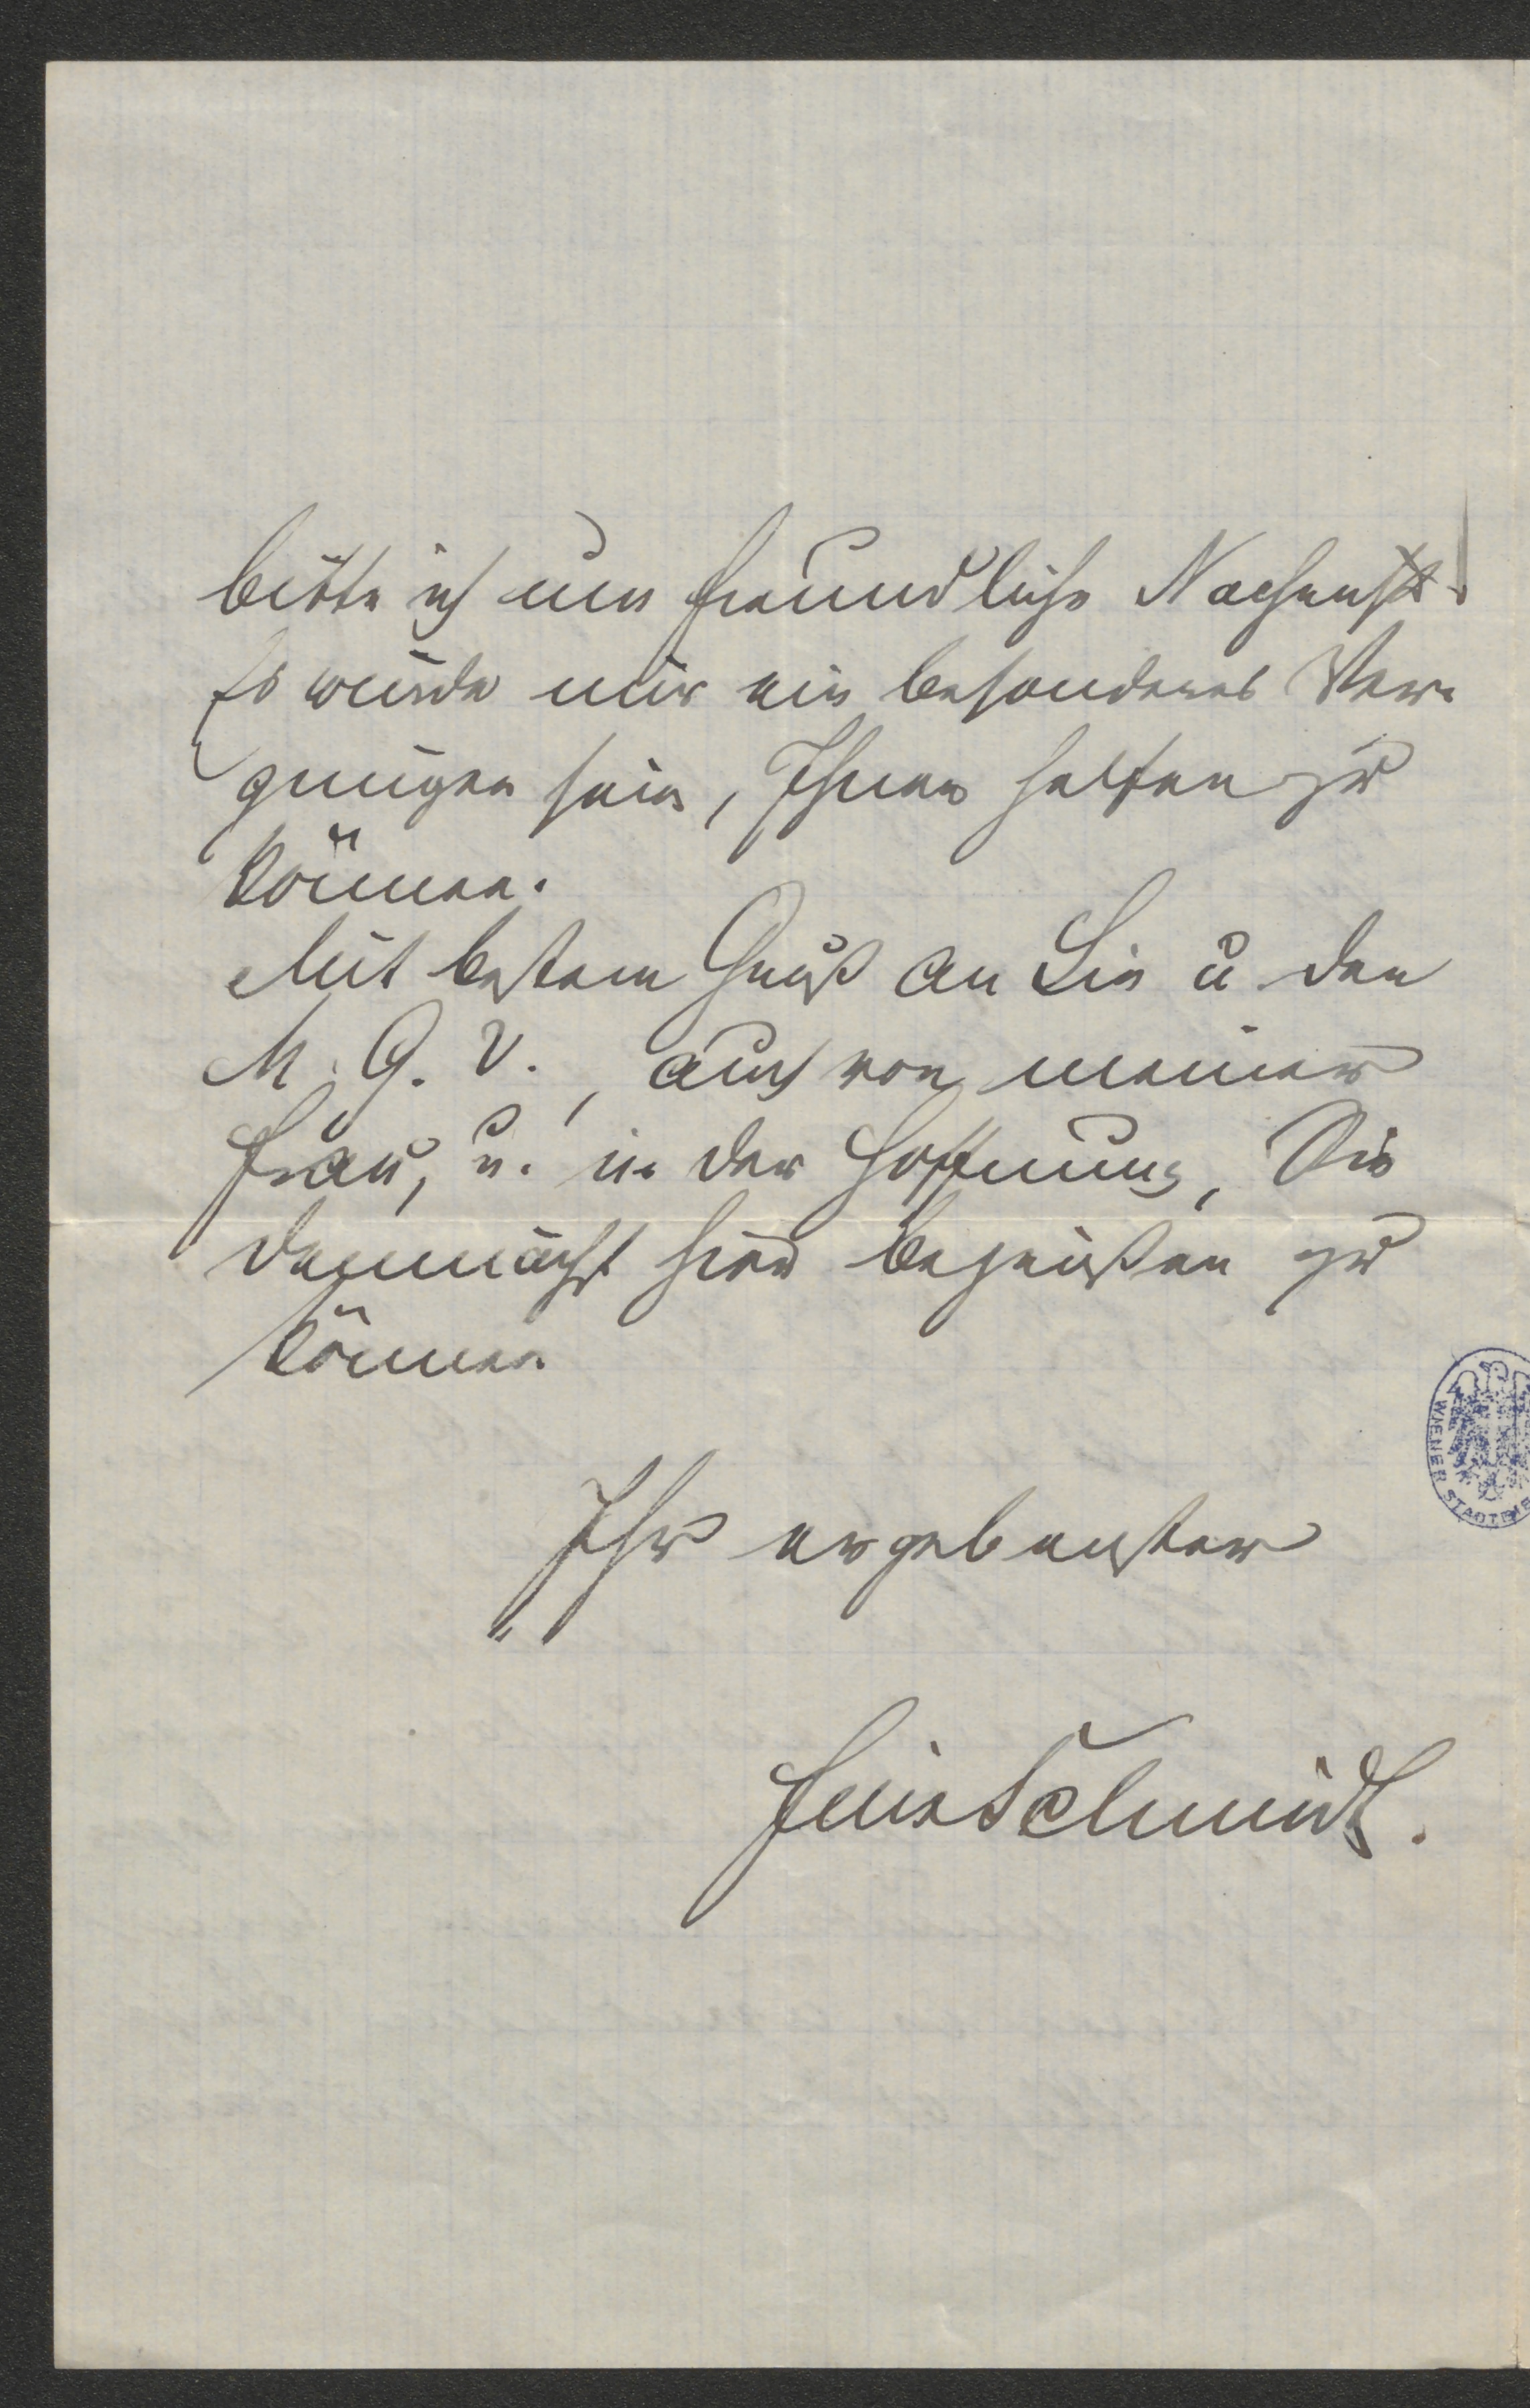 bitte ich um freundliche Nachricht.
Es würde mir ein besonderes Ver-
gnügen sein, Ihnen helfen zu
können.
Mit bestem Gruß an Sie u. den
M. G. V., auch von meiner
Frau, u. in der Hoffnung, Sie
demnächst hier begrüßen zu
können
Ihr ergebenster
Schmidt.
WIENER STADT